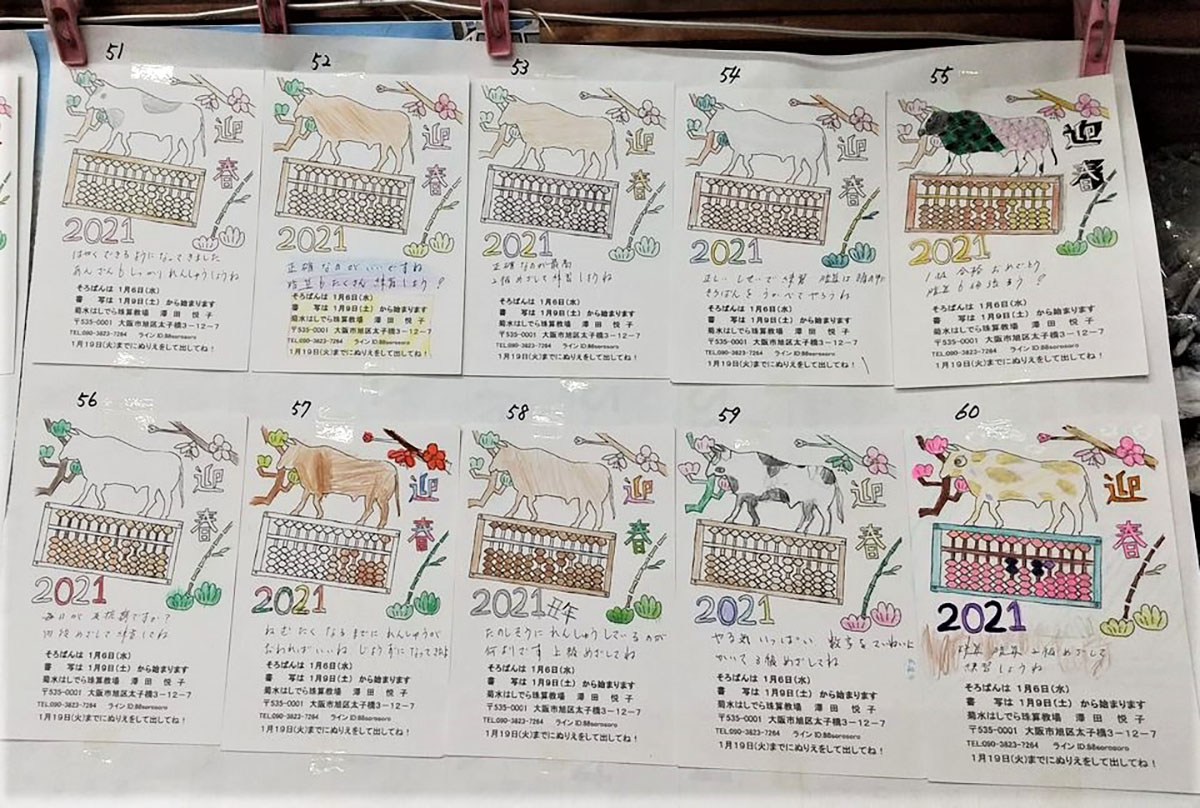 51
迎
春
2021
はやくできるようになってきました
あんざんもしっかりれんしゅうしようね
そろばんは 1月6日(水)
書　写は 1月9日(土) から始まります
菊水はしでら珠算教場　澤田　悦子
〒535-0001 大阪市旭区太子橋3-12-7
TEL:090-3823-7264　ライン ID:88sorosoro
1月19日(火)までにぬりえをして出してね!
52
迎
春
2021
正確なのがいいですね
たくさん練習しよう?
そろばんは 1月6日(水)
書　写は 1月9日(土) から始まります
菊水はしでら珠算教場　澤田　悦子
〒535-0001 大阪市旭区太子橋3-12-7
TEL:090-3823-7264　ライン ID:88sorosoro
1月19日(火)までにぬりえをして出してね!
53
迎
春
2021
正確なのが最高
上級めざして練習しようね
そろばんは 1月6日(水)
書　写は 1月9日(土) から始まります
菊水はしでら珠算教場　澤田　悦子
〒535-0001 大阪市旭区太子橋3-12-7
TEL:090-3823-7264　ライン ID:88sorosoro
1月19日(火)までにぬりえをして出してね!
54
迎
春
2021
正しいしせいで練習
そろばんをうかべてやろうね
そろばんは 1月6日(水)
書　写は 1月9日(土) から始まります
菊水はしでら珠算教場　澤田　悦子
〒535-0001 大阪市旭区太子橋3-12-7
TEL:090-3823-7264　ライン ID:88sorosoro
1月19日(火)までにぬりえをして出してね!
55
迎
春
2021
1級 合格おめでとう
そろばんは 1月6日(水)
書　写は 1月9日(土) から始まります
菊水はしでら珠算教場　澤田　悦子
〒535-0001 大阪市旭区太子橋3-12-7
TEL:090-3823-7264　ライン ID:88sorosoro
1月19日(火)までにぬりえをして出してね!
56
迎
春
2021
めざして練習してね
そろばんは 1月6日(水)
書　写は 1月9日(土) から始まります
菊水はしでら珠算教場　澤田　悦子
〒535-0001 大阪市旭区太子橋3-12-7
TEL:090-3823-7264　ライン ID:88sorosoro
1月19日(火)までにぬりえをして出してね!
57
迎
春
2021
ねむたくなるまでにれんしゅうが
おわればいいね じょうずになってきたよ
そろばんは 1月6日(水)
書　写は 1月9日(土) から始まります
菊水はしでら珠算教場　澤田　悦子
〒535-0001 大阪市旭区太子橋3-12-7
TEL:090-3823-7264　ライン ID:88sorosoro
1月19日(火)までにぬりえをして出してね!
58
迎
春
2021丑年
たのしそうにれんしゅうしているのが
何よりです 上級めざしてね
そろばんは 1月6日(水)
書　写は 1月9日(土) から始まります
菊水はしでら珠算教場　澤田　悦子
〒535-0001 大阪市旭区太子橋3-12-7
TEL:090-3823-7264　ライン ID:88sorosoro
1月19日(火)までにぬりえをして出してね!
59
迎
春
2021
やる気いっぱい 数字をていねいに
かいて3級めざしてね
そろばんは 1月6日(水)
書　写は 1月9日(土) から始まります
菊水はしでら珠算教場　澤田　悦子
〒535-0001 大阪市旭区太子橋3-12-7
TEL:090-3823-7264　ライン ID:88sorosoro
1月19日(火)までにぬりえをして出してね!
60
迎
春
2021
上級めざして
練習しようね
そろばんは 1月6日(水)
書　写は 1月9日(土) から始まります
菊水はしでら珠算教場　澤田　悦子
〒535-0001 大阪市旭区太子橋3-12-7
TEL:090-3823-7264　ライン ID:88sorosoro
1月19日(火)までにぬりえをして出してね!